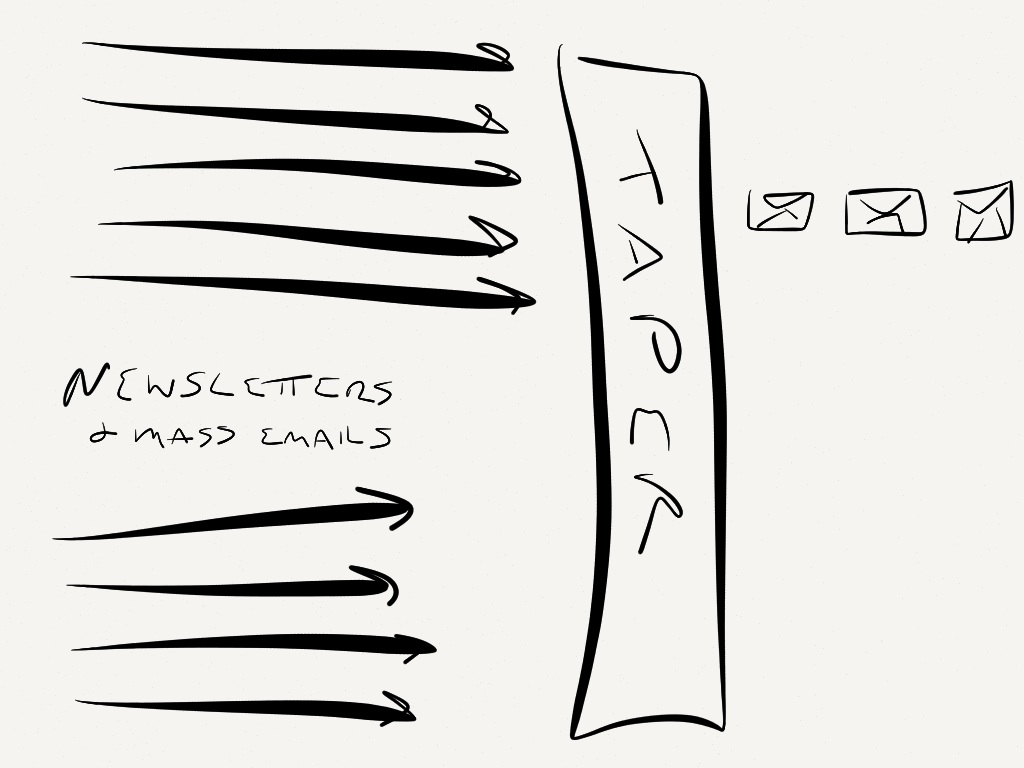 NEWSLETTERS
& MASS EMAILS
TAPER